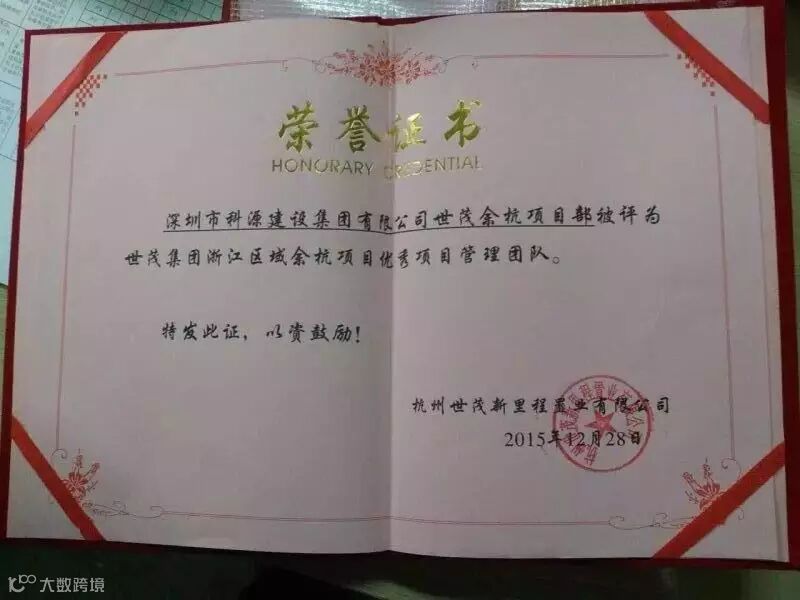 荣誉证书
HONORARY CREDENTIAL
深圳市科源建设集团有限公司世茂余杭项目部被评为
世茂集团浙江区域余杭项目优秀项目管理团队。
特发此证，以资鼓励！
杭州世茂新里程置业有限公司
2015年12月28日
大数跨境